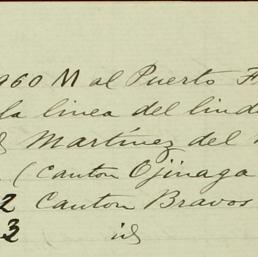 960 M al Puerto F
la linea del lind
Martínez del
(Canton Ojinaga
2 Canton Bravos
3 id